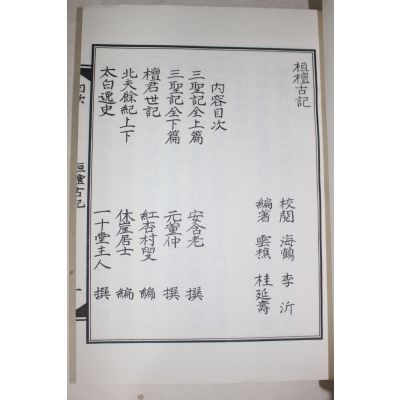 桓檀古記
校閱 海鶴 李沂
編著 雲樵 桂延壽
內容目次
三聖記全上篇 安含老 撰
三聖記全下篇 元董仲 撰
檀君世記 紅杏村叟 編
北夫餘紀上下 休崖居士 編
太白逸史 一十堂主人 撰
目次 桓檀古記 一